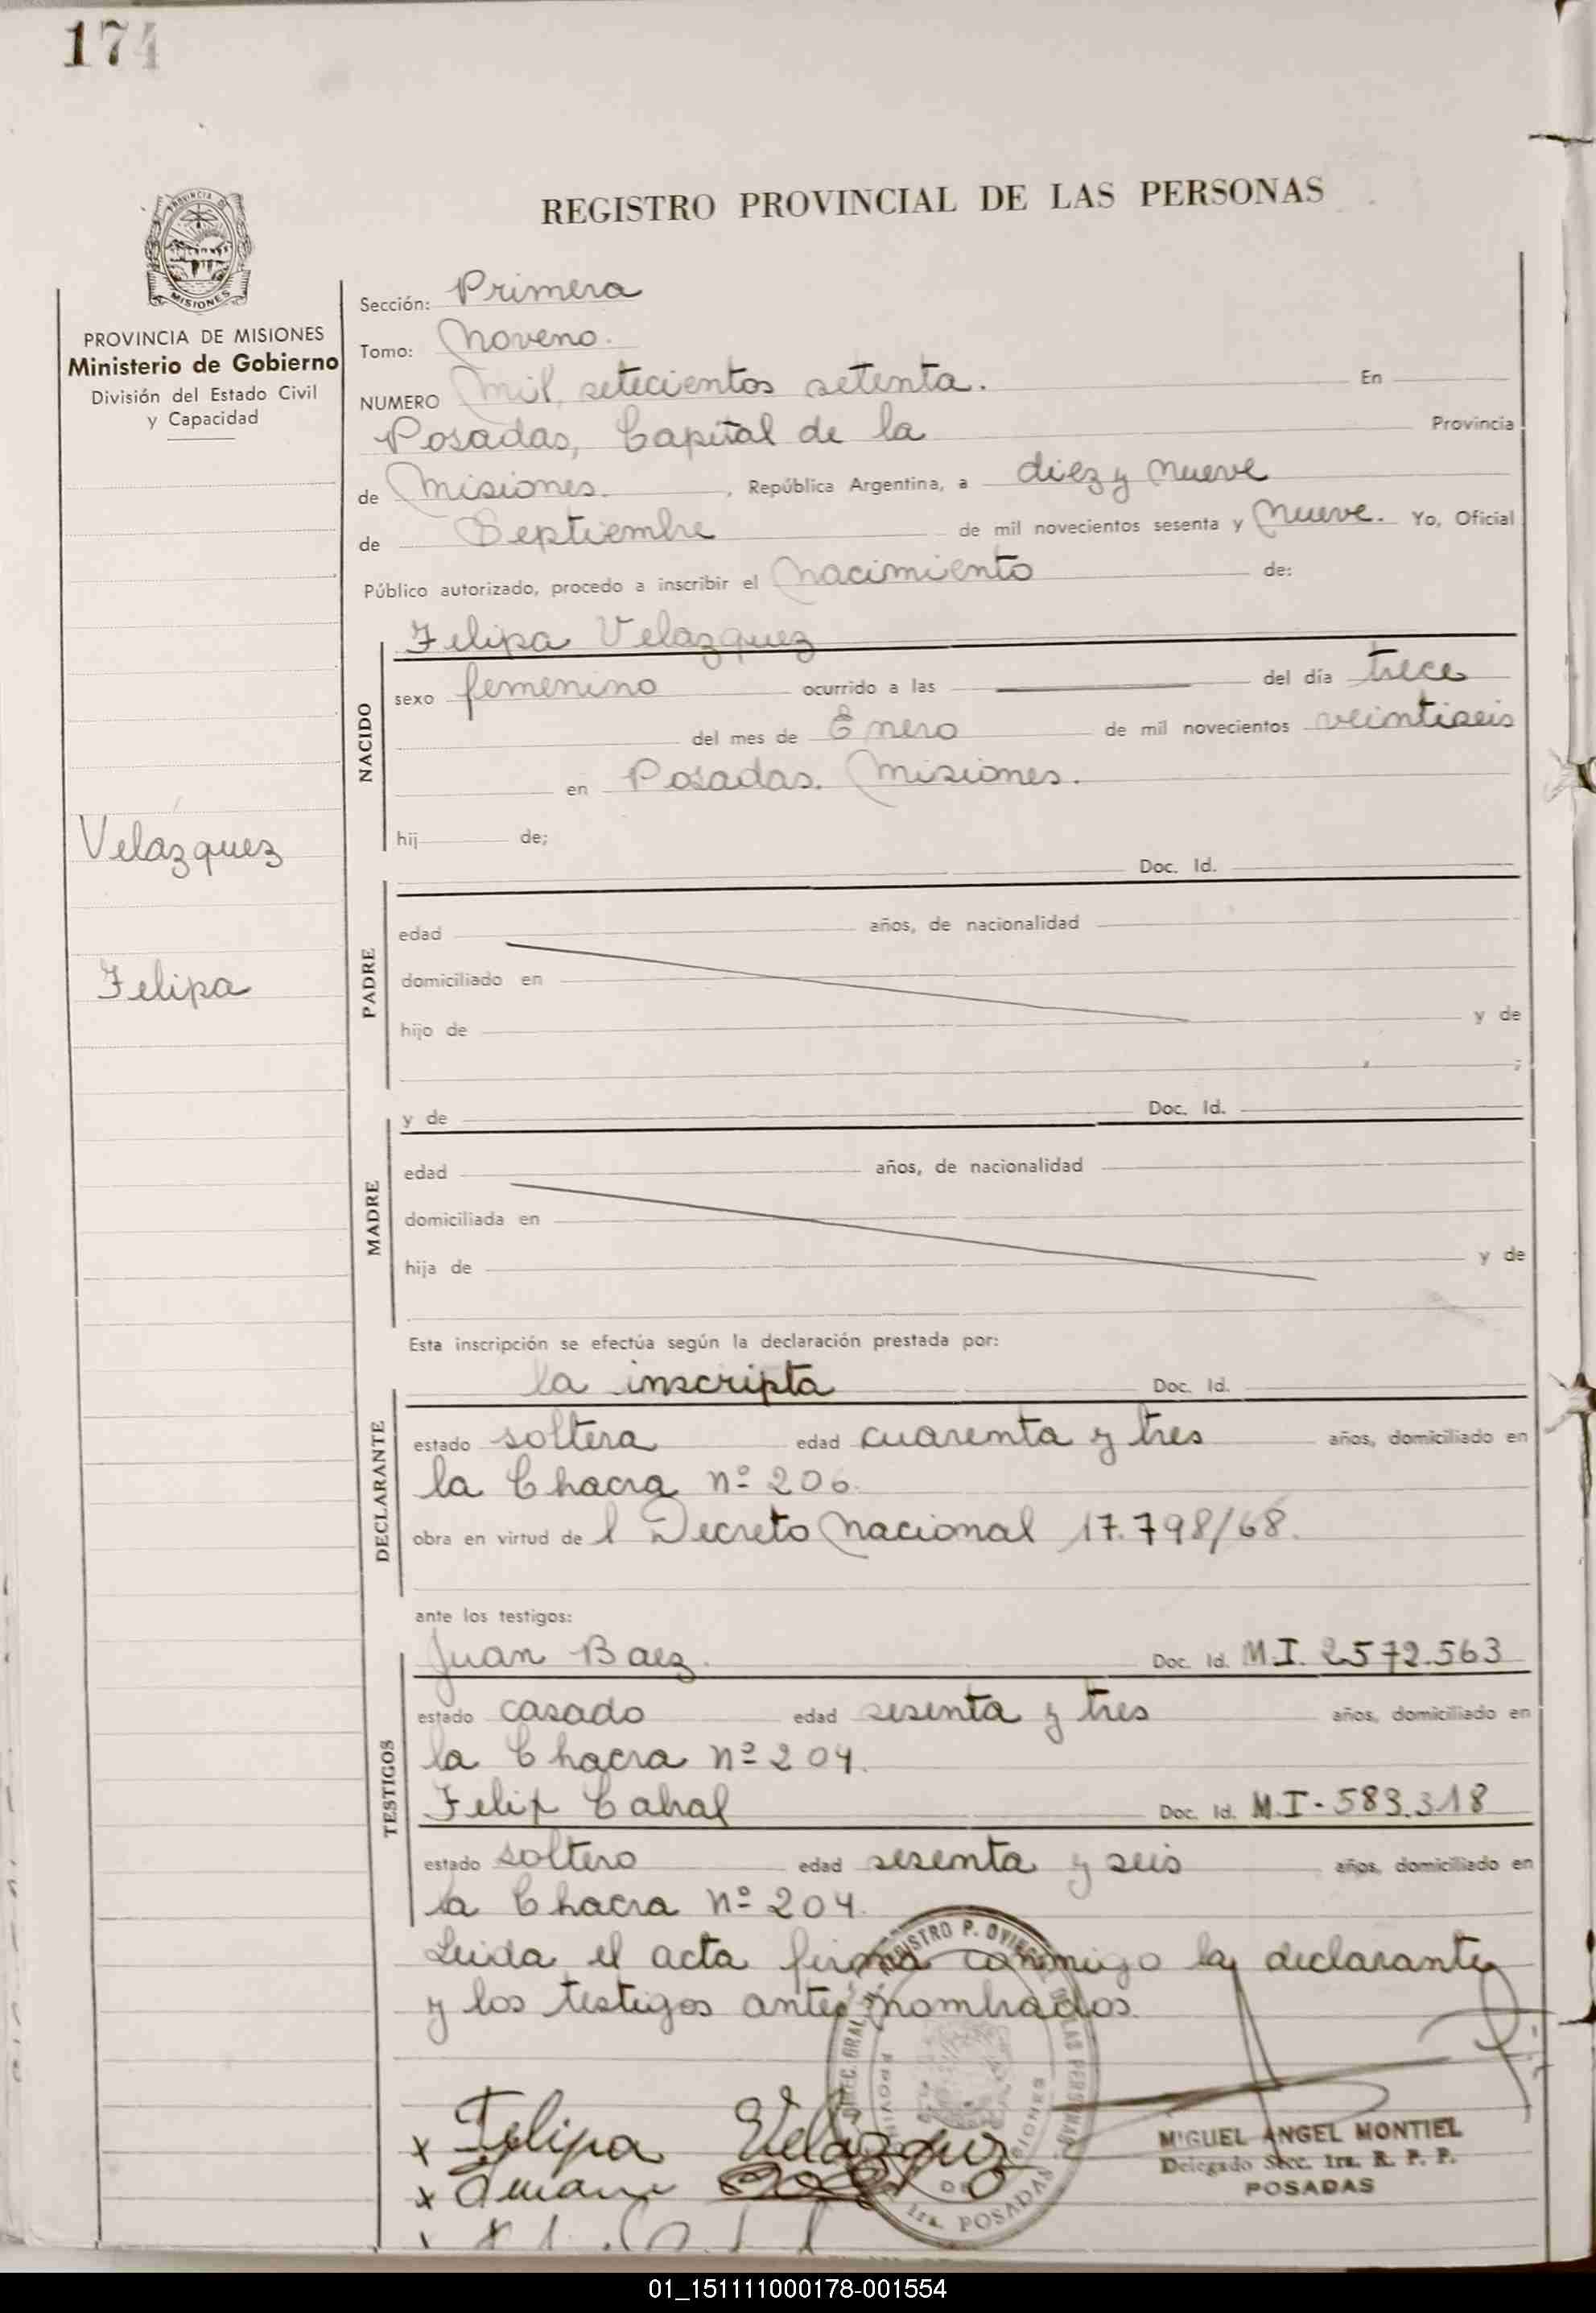 174
REGISTRO PROVINCIAL DE LAS PERSONAS
PROVINCIA DE
MISIONES
PROVINCIA DE MISIONES
Ministerio de Gobierno
División del Estado Civil
y Capacidad
Velazquez
Felipa
Sección: Primera
Tomo: Noveno.
NUMERO Mil setecientos setenta. En
Posadas, Capital de la Provincia
de Misiones. , República Argentina, a diez y nueve
de Septiembre de mil novecientos sesenta y Nueve. Yo, Oficial
Público autorizado, procedo a inscribir el Nacimiento de:
NACIDO
Felipa Velazquez
sexo femenino ocurrido a las del día trece
del mes de Enero de mil novecientos veintiseis
en Posadas. Misiones.
hij de;
PADRE
Doc. Id.
edad años, de nacionalidad
domiciliado en
hijo de y de
;
MADRE
y de Doc. Id.
edad años, de nacionalidad
domiciliada en
hija de y de
Esta inscripción se efectúa según la declaración prestada por:
DECLARANTE
la inscripta Doc. Id.
estado soltera edad cuarenta y tres años, domiciliado en
la Chacra nº 206.
obra en virtud de l Decreto Nacional 17.798/68.
ante los testigos:
TESTIGOS
Juan Baez. Doc. Id. M.I. 2572.563
estado casado edad sesenta y tres años, domiciliado en
la Chacra nº 204.
Felix Cabral Doc. Id. M.I - 583.318
estado soltero edad sesenta y seis años, domiciliado en
la Chacra nº 204.
Leida el acta firma conmigo la declarante
y los testigos antes nombrados.
x Felipa Velazquez
x
MIGUEL ANGEL MONTIEL
Delegado Secc. 1ra. R. P. P.
POSADAS
1ra. POSADAS
01_151111000178-001554